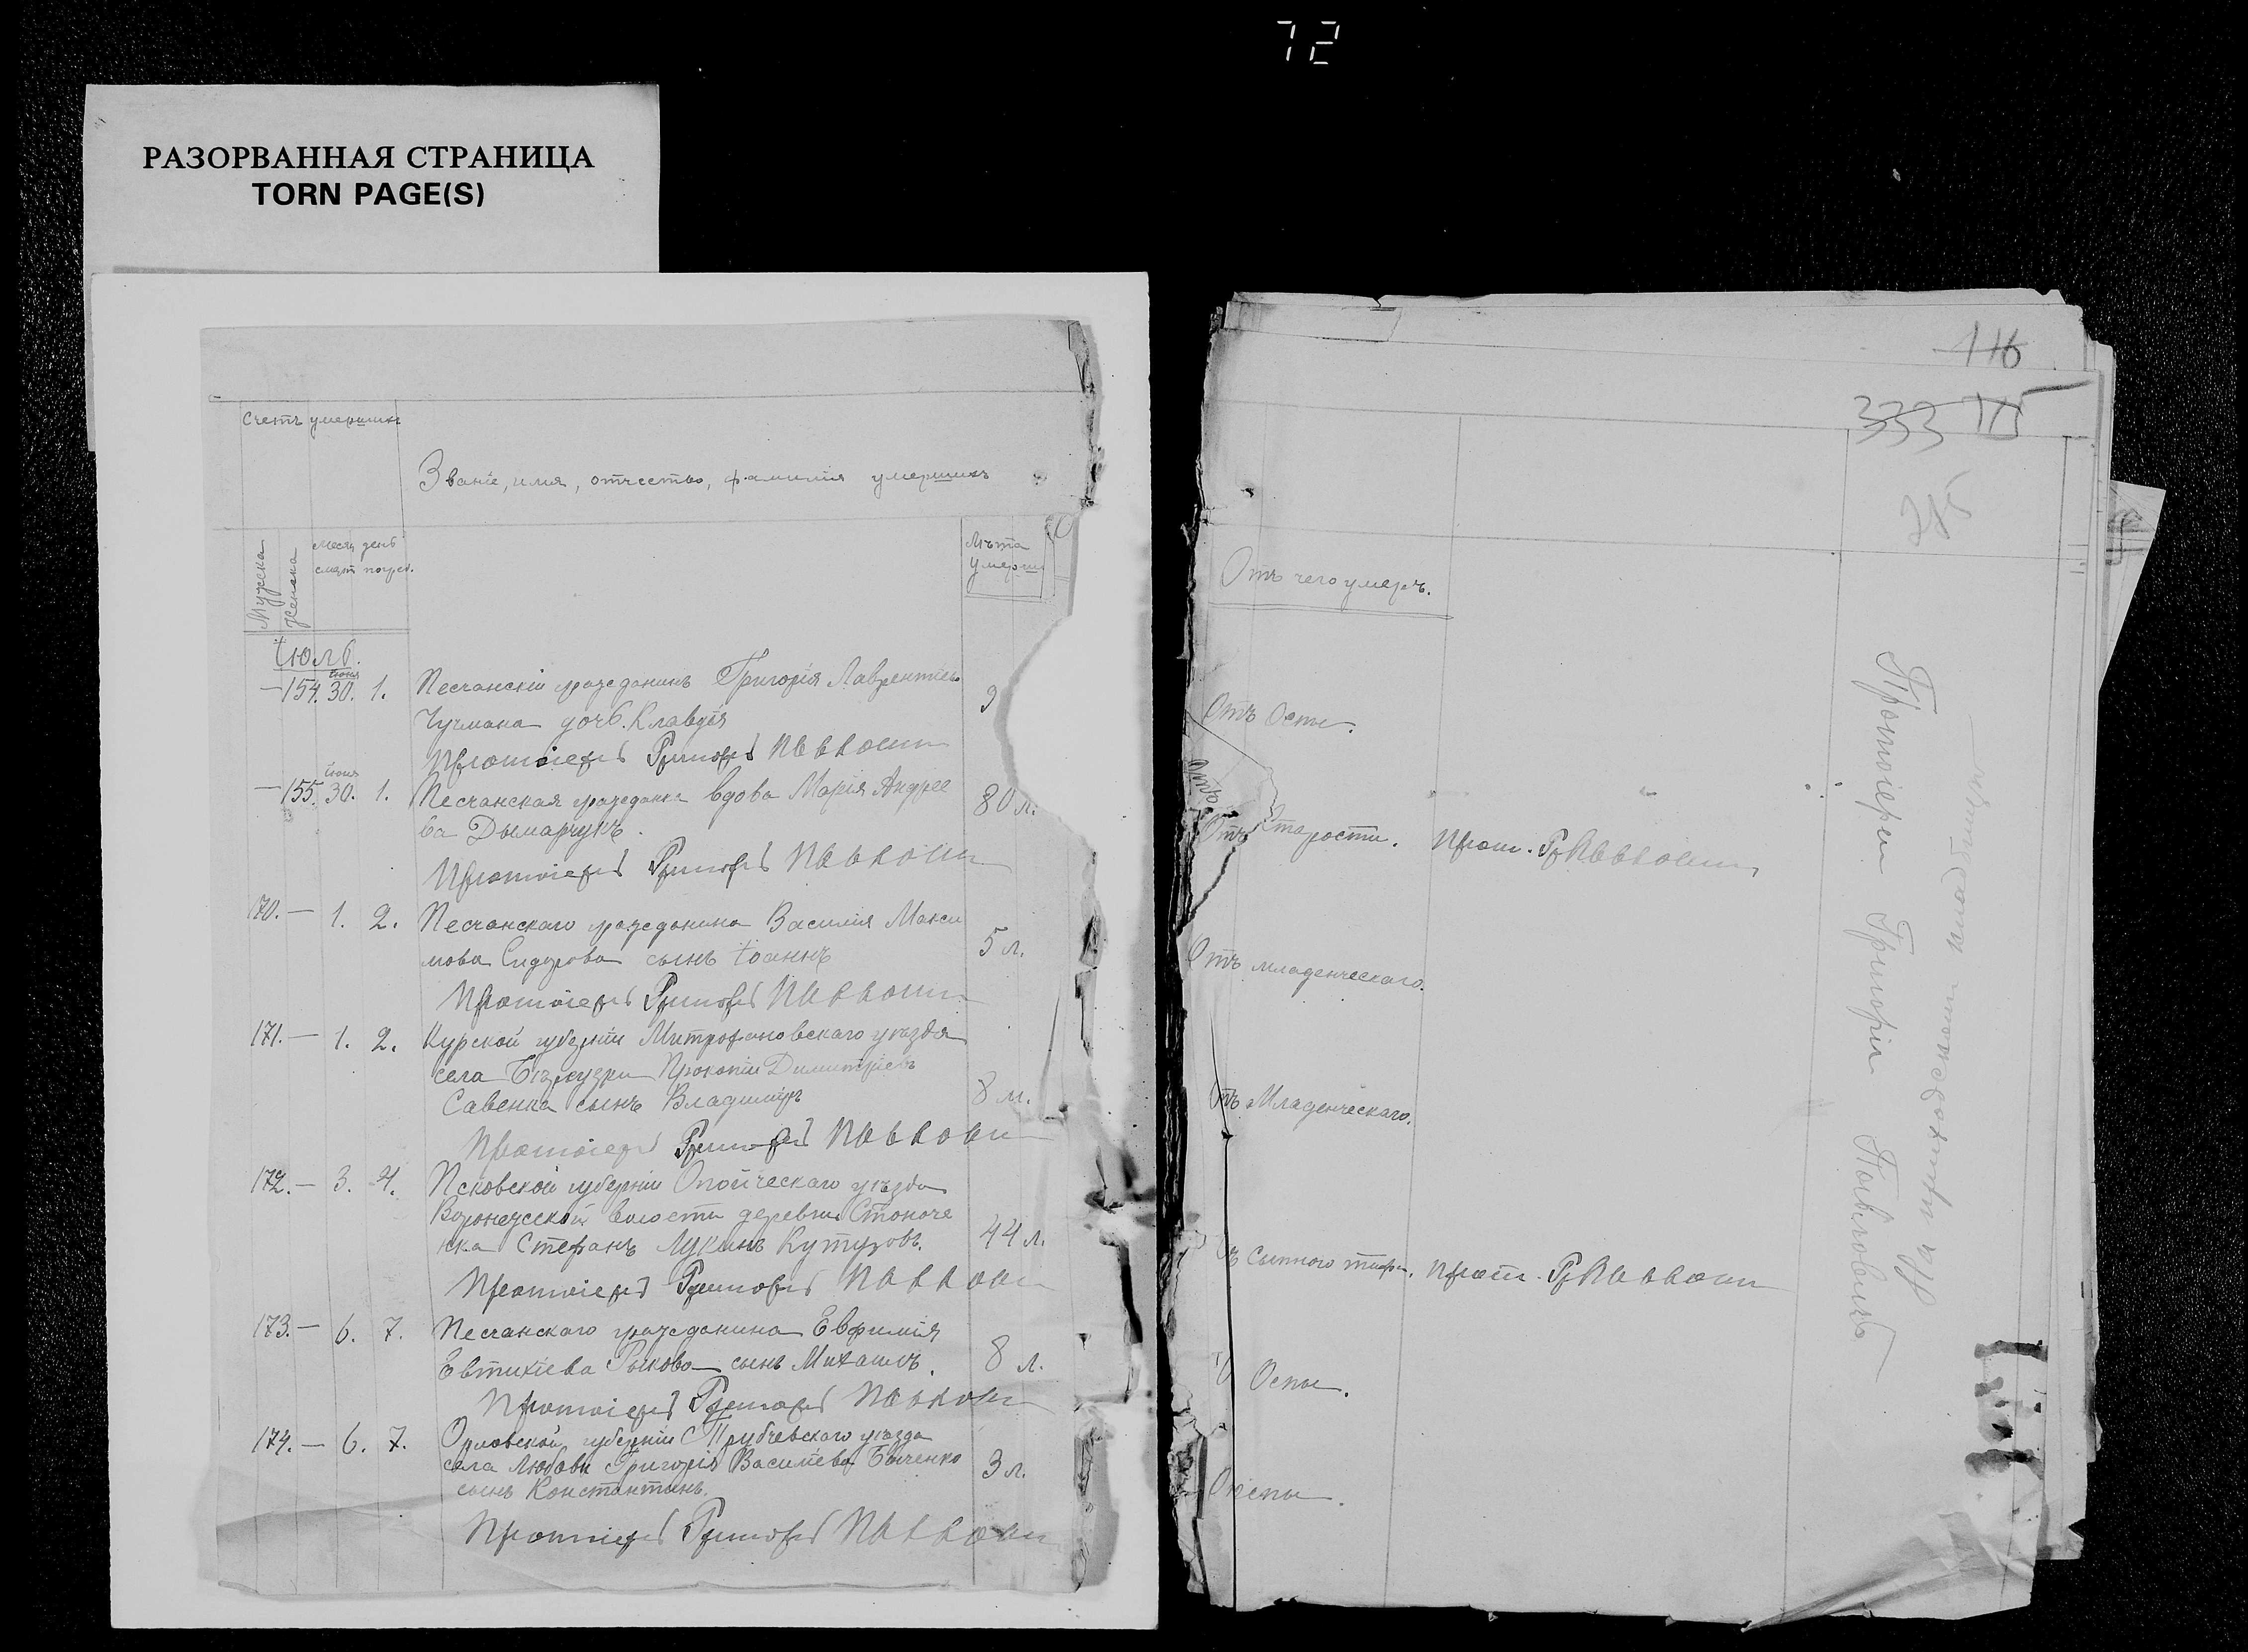 72
РАЗОРВАННАЯ СТРАНИЦА
TORN PAGE(S)
Счетъ умершихъ
Званіе, имя, отчество, фамилія умершихъ
Мужска
Женска
месяц день
смерт погреб.
Лѣта
умерш
Іюль.
Іюня
—154. 30. 1. Песчанскій гражданинъ Григорія Лаврентіев
Чучмана дочь Клавдія 9
Протоіерей Григорій Павлович
Іюня
—155. 30. 1. Песчанская гражданка вдова Марія Андрее
ва Дымарчукъ. 80 л.
Протоіерей Григорій Павлович
170. — 1. 2. Песчанскаго гражданина Василія Макси
мова Сидорова сынъ Іоаннъ 5 л.
Протоіерей Григорій Павлович
171. — 1. 2. Курской губерніи Митрофановскаго уѣзда
села Прокопія Димитріевъ
Савенка сынъ Владиміръ 8 м.
Протоіерей Григорій Павлович
172. — 3. 4. Псковской губерніи Опочческаго уѣзда
волости деревни
Стефанъ Лукинъ Кутузовъ. 44 л.
Протоіерей Григорій Павлович
173. — 6. 7. Песчанскаго гражданина Евфимія
Евтихіева Рыкова сынъ Михаилъ. 8 л.
Протоіерей Григорій Павлович
174. — 6. 7. Орловской губерніи Трубчевскаго уѣзда
села Григорія Василіева
сынъ Константинъ. 3 л.
Протоіерей Григорій Павлович
116
333 115
Отъ чего умеръ.
Отъ Оспы.
Отъ
Отъ старости. Прот. Гр Павлович
Отъ младенческаго.
тъ Младенческаго.
ъ Сыпного тифа. Прот. Гр Павлович
Оспы.
Оспы.
Протоіерей Григорій Павловичъ